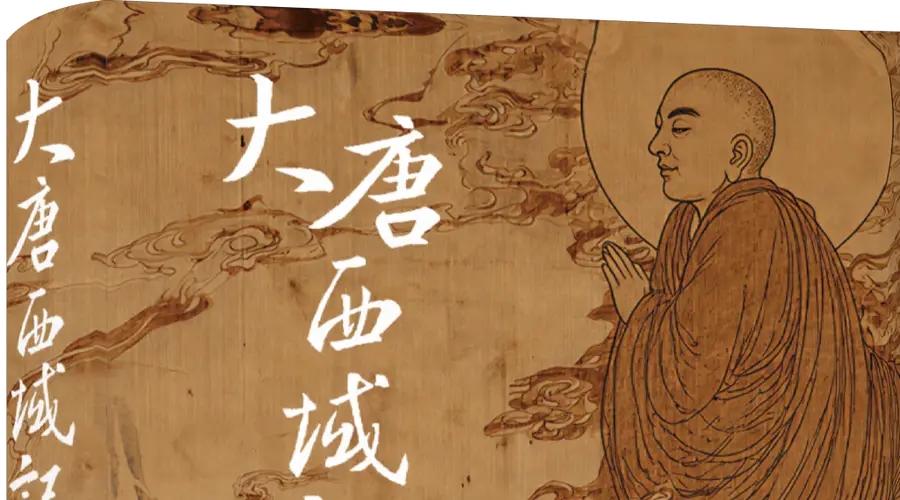 大唐西域
大唐西域记